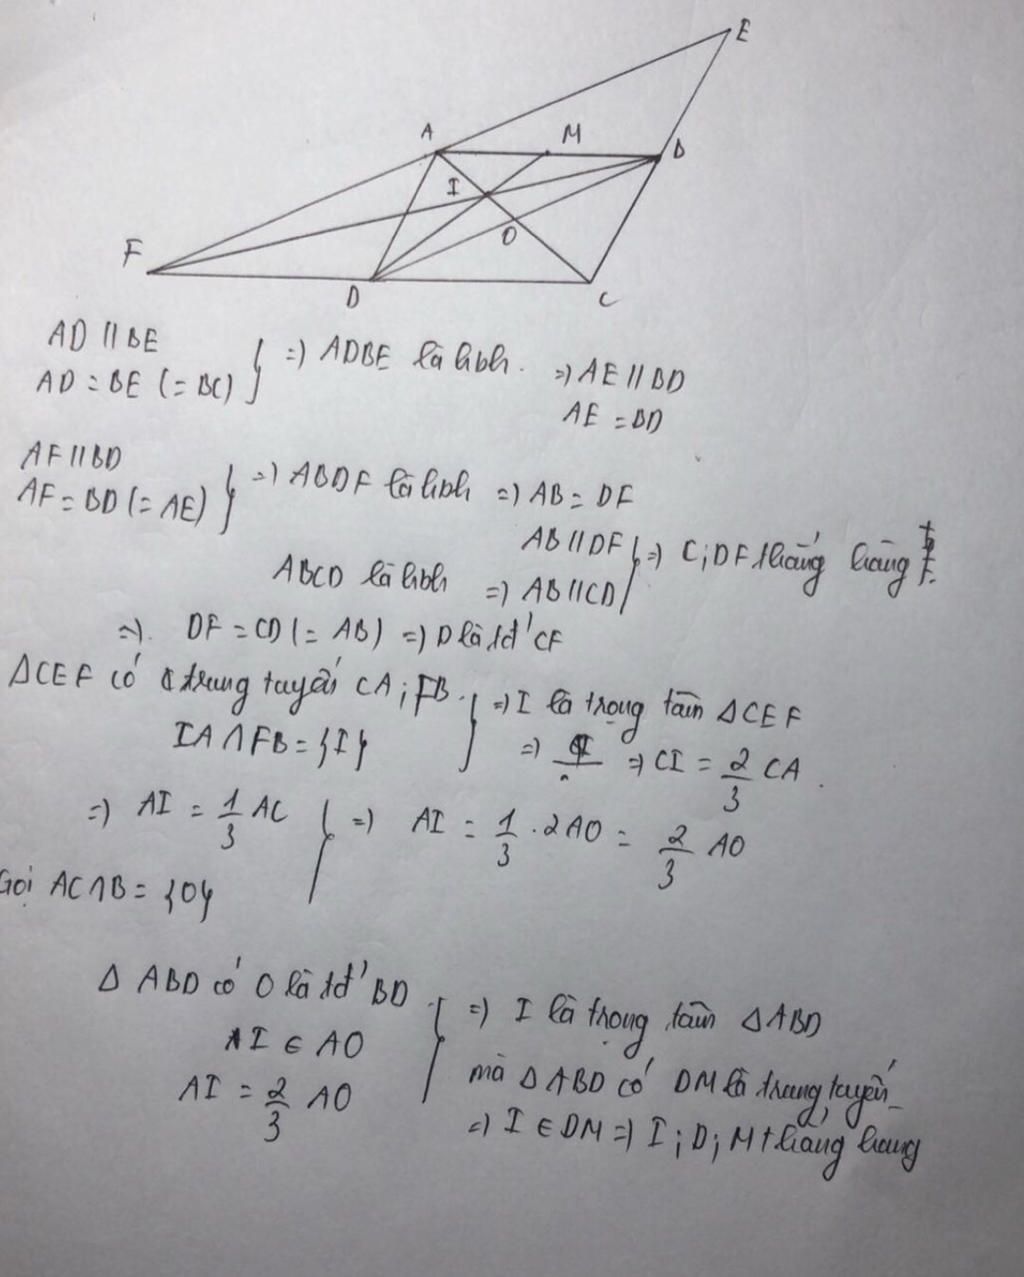 E
A
M
B
I
O
F
D
C
AD // BE
AD = BE (= BC) } => ADBE là hbh. => AE // BD
AE = BD
AF // BD
AF = BD (= AE) } => ABDF là hbh => AB = DF
AB // DF } => C; D F thẳng hàng
ABCD là hbh => AB // CD
=> DF = CD (= AB) => D là tđ' CF
ΔCEF có trung tuyến CA; FB } => I là trọng tâm ΔCEF
IA ∩ FB = {I} => => CI = 2/3 CA.
=> AI = 1/3 AC } => AI = 1/3 . 2AO = 2/3 AO
Gọi AC ∩ B = {O}
Δ ABD có O là tđ' BD } => I là trọng tâm ΔABD
I ∈ AO
mà Δ ABD có DM là trung tuyến
AI = 2/3 AO
=> I ∈ DM => I; D; M thẳng hàng